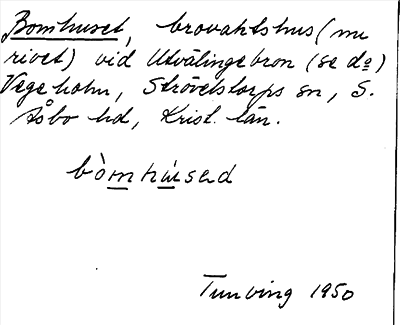 Bomhuset, brovaktshus (nu
rivet) vid Utvälingebron (se d:o)
Vegeholm, Strövelstorps sn, S.
Åsbo hd, Krist. län.
bòmhu̇sed
Tunving 1950